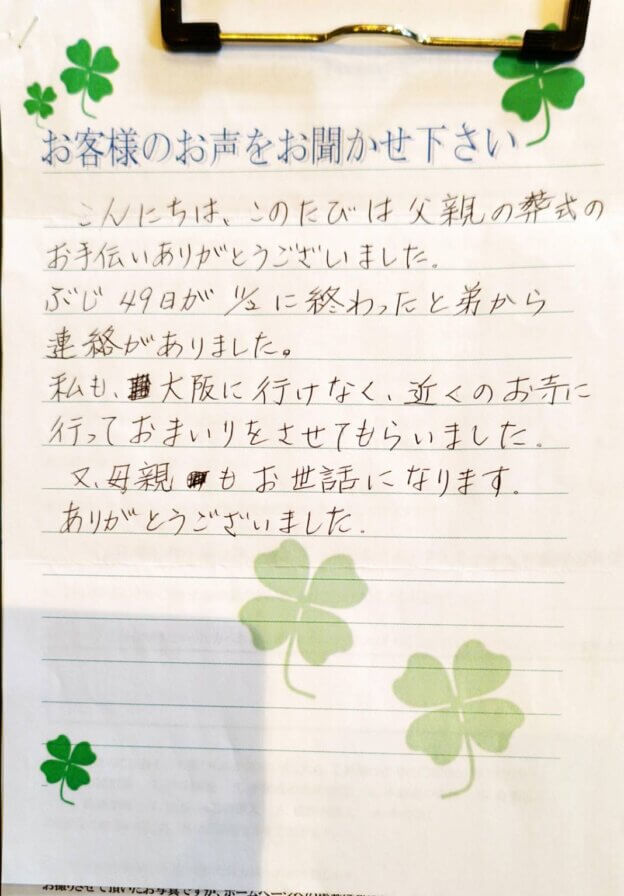 お客様のお声をお聞かせ下さい
こんにちは、このたびは父親の葬式の
お手伝いありがとうございました。
ぶじ49日が11/2に終わったと弟から
連絡がありました。
私も、大阪に行けなく、近くのお寺に
行っておまいりをさせてもらいました.
又、母親もお世話になります.
ありがとうございました.
お撮りさせて頂いたお写真ですが、ホームページ